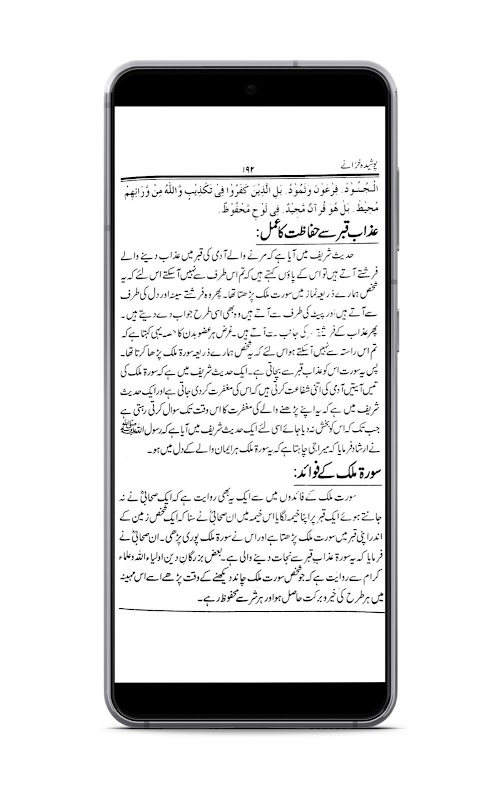 پوشیدہ خزانے
۱۹۲
الْـجُـنُـوْدِ. فِـرْعَـوْنَ وَثَـمُـوْدَ. بَـلِ الَّذِیْنَ کَفَرُوْا فِیْ تَکْذِیْبٍ وَّاللّٰہُ مِنْ وَّرَائِھِمْ
مُحِیْطٌ. بَلْ ھُوَ قُرْآنٌ مَّجِیْدٌ. فِی لَوْحٍ مَّحْفُوْظٍ.
عذاب قبر سے حفاظت کا عمل:
حدیث شریف میں آیا ہے کہ مرنے والے آدمی کی قبر میں عذاب دینے والے
فرشتے آتے ہیں تو اس کے پاؤں کہتے ہیں کہ تم اس طرف سے نہیں آسکتے اس لئے کہ یہ
شخص ہمارے ذریعہ نماز میں سورت ملک پڑھتا تھا۔ پھر وہ فرشتے سینہ اور دل کی طرف
سے آتے ہیں اور پیٹ کی طرف سے آتے ہیں وہ بھی اسی طرح جواب دے دیتے ہیں۔
پھر عذاب کے فرشتے کی جانب سے آتے ہیں۔ غرض ہر عضو بدن کا حصہ یہی کہتا ہے کہ
تم اس راستہ سے نہیں آسکتے ہو اس لئے کہ یہ شخص ہمارے ذریعہ سورۃ ملک پڑھا کرتا تھا۔
پس یہ سورت اس کو عذاب قبر سے بچاتی ہے۔ ایک حدیث شریف میں ہے کہ سورۃ ملک کی
تیس آیتیں آدمی کی اتنی شفاعت کرتی ہیں کہ اس کی مغفرت کردی جاتی ہے اور ایک حدیث
شریف میں ہے کہ یہ اپنے پڑھنے والے کی مغفرت کا اس وقت تک سوال کرتی رہتی ہے
جب تک کہ اس کو بخش نہ دیا جائے اسی لئے ایک حدیث شریف میں آیا ہے کہ رسول اللہ ﷺ
نے ارشاد فرمایا کہ میرا جی چاہتا ہے کہ یہ سورۃ ملک ہر ایمان والے کے دل میں ہو۔
سورۃ ملک کے فوائد:
سورت ملک کے فائدوں میں سے ایک یہ بھی روایت ہے کہ ایک صحابیؓ نے نہ
جانتے ہوئے ایک قبر پر اپنا خیمہ لگایا اس خیمہ میں ان صحابیؓ نے سنا کہ ایک شخص زمین کے
اندر اپنی قبر میں سورت ملک پڑھتا ہے اور اس نے سورۃ ملک پوری پڑھی۔ ان صحابیؓ نے
فرمایا کہ یہ سورۃ عذاب قبر سے نجات دینے والی ہے۔ بعض بزرگان دین اولیاء اللہ و علماء
کرام سے روایت ہے کہ جو شخص سورت ملک چاند دیکھنے کے وقت پڑھے اسے اس مہینہ
میں ہر طرح کی خیر و برکت حاصل ہو اور ہر شر سے محفوظ رہے۔